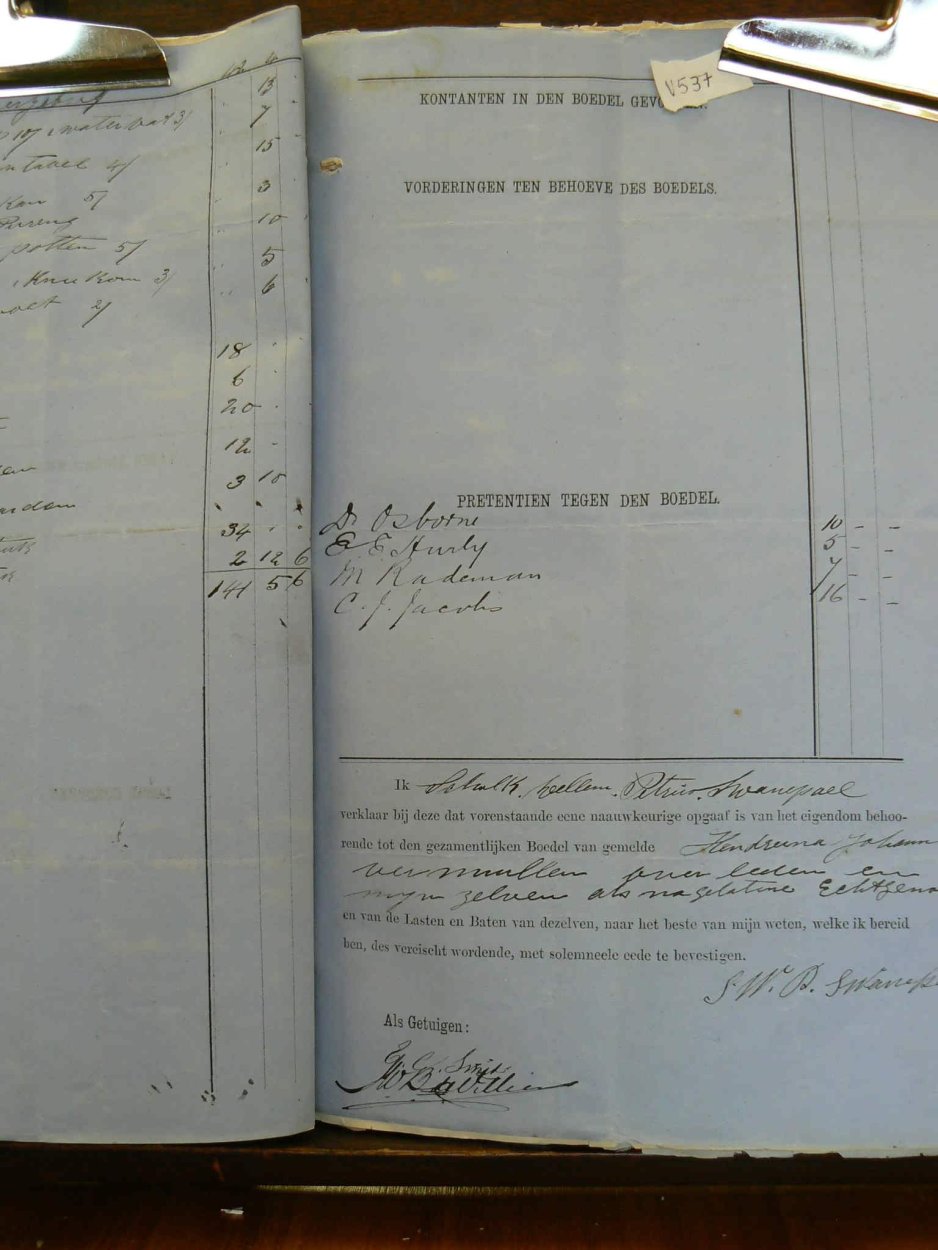 13
waterbat 3/ 7
4/ 15
Kan 5/ 3
10
potten 5/ 5
3/ 6
2/
18
6
20
12
3 10
34
2 12 6
141 5 6
V537
KONTANTEN IN DEN BOEDEL
VORDERINGEN TEN BEHOEVE DES BOEDELS.
PRETENTIEN TEGEN DEN BOEDEL.
Dr Osborne 10 - -
E. E. Hurly 5 - -
M Rademan 7 - -
C. J. Jacobs 16 - -
Ik Schalk Willem Petrus Swanepoel
verklaar bij deze dat vorenstaande eene naauwkeurige opgaaf is van het eigendom behoo-
rende tot den gezamentlijken Boedel van gemelde Hendreena Johann
vermullen over leden en
myn zelven als nagelatine Echtgeno
en van de Lasten en Baten van dezelven, naar het beste van mijn weten, welke ik bereid
ben, des vereischt wordende, met solemneele eede te bevestigen.
S. W. P. Swanep
Als Getuigen:
Smit